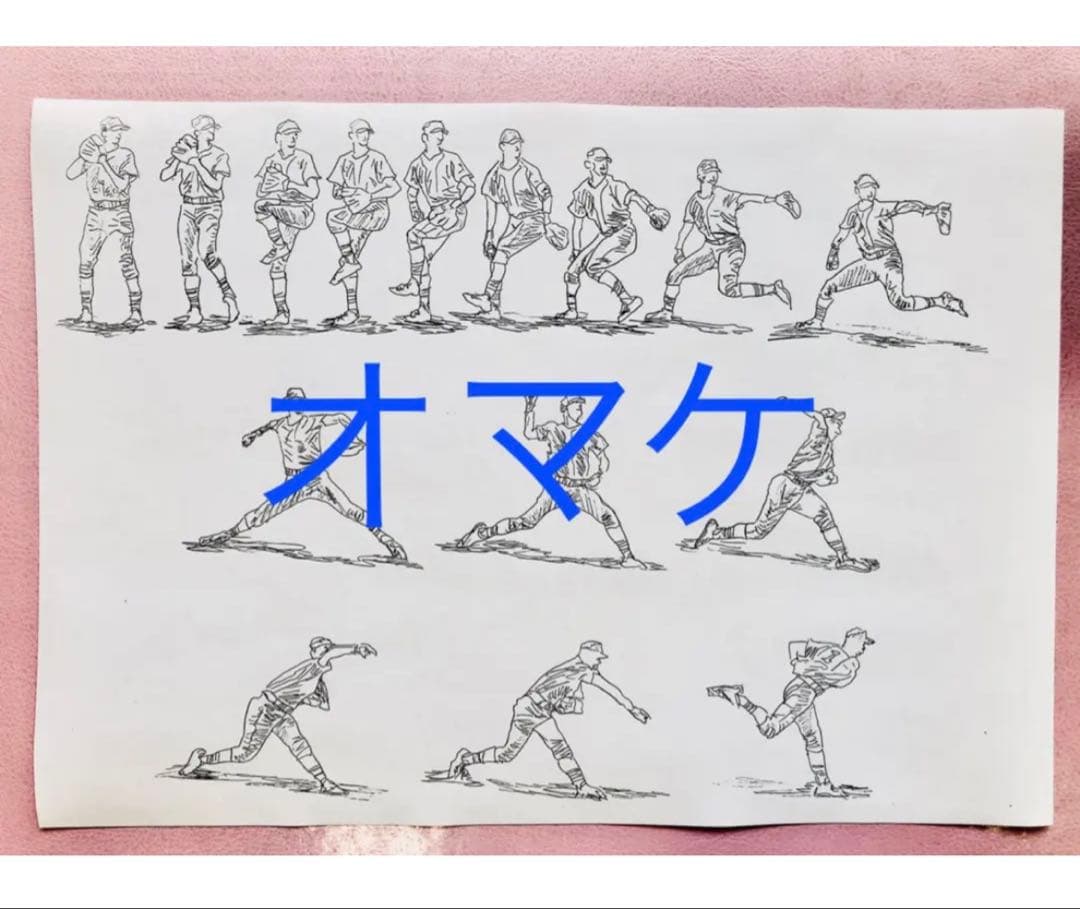 オマケ